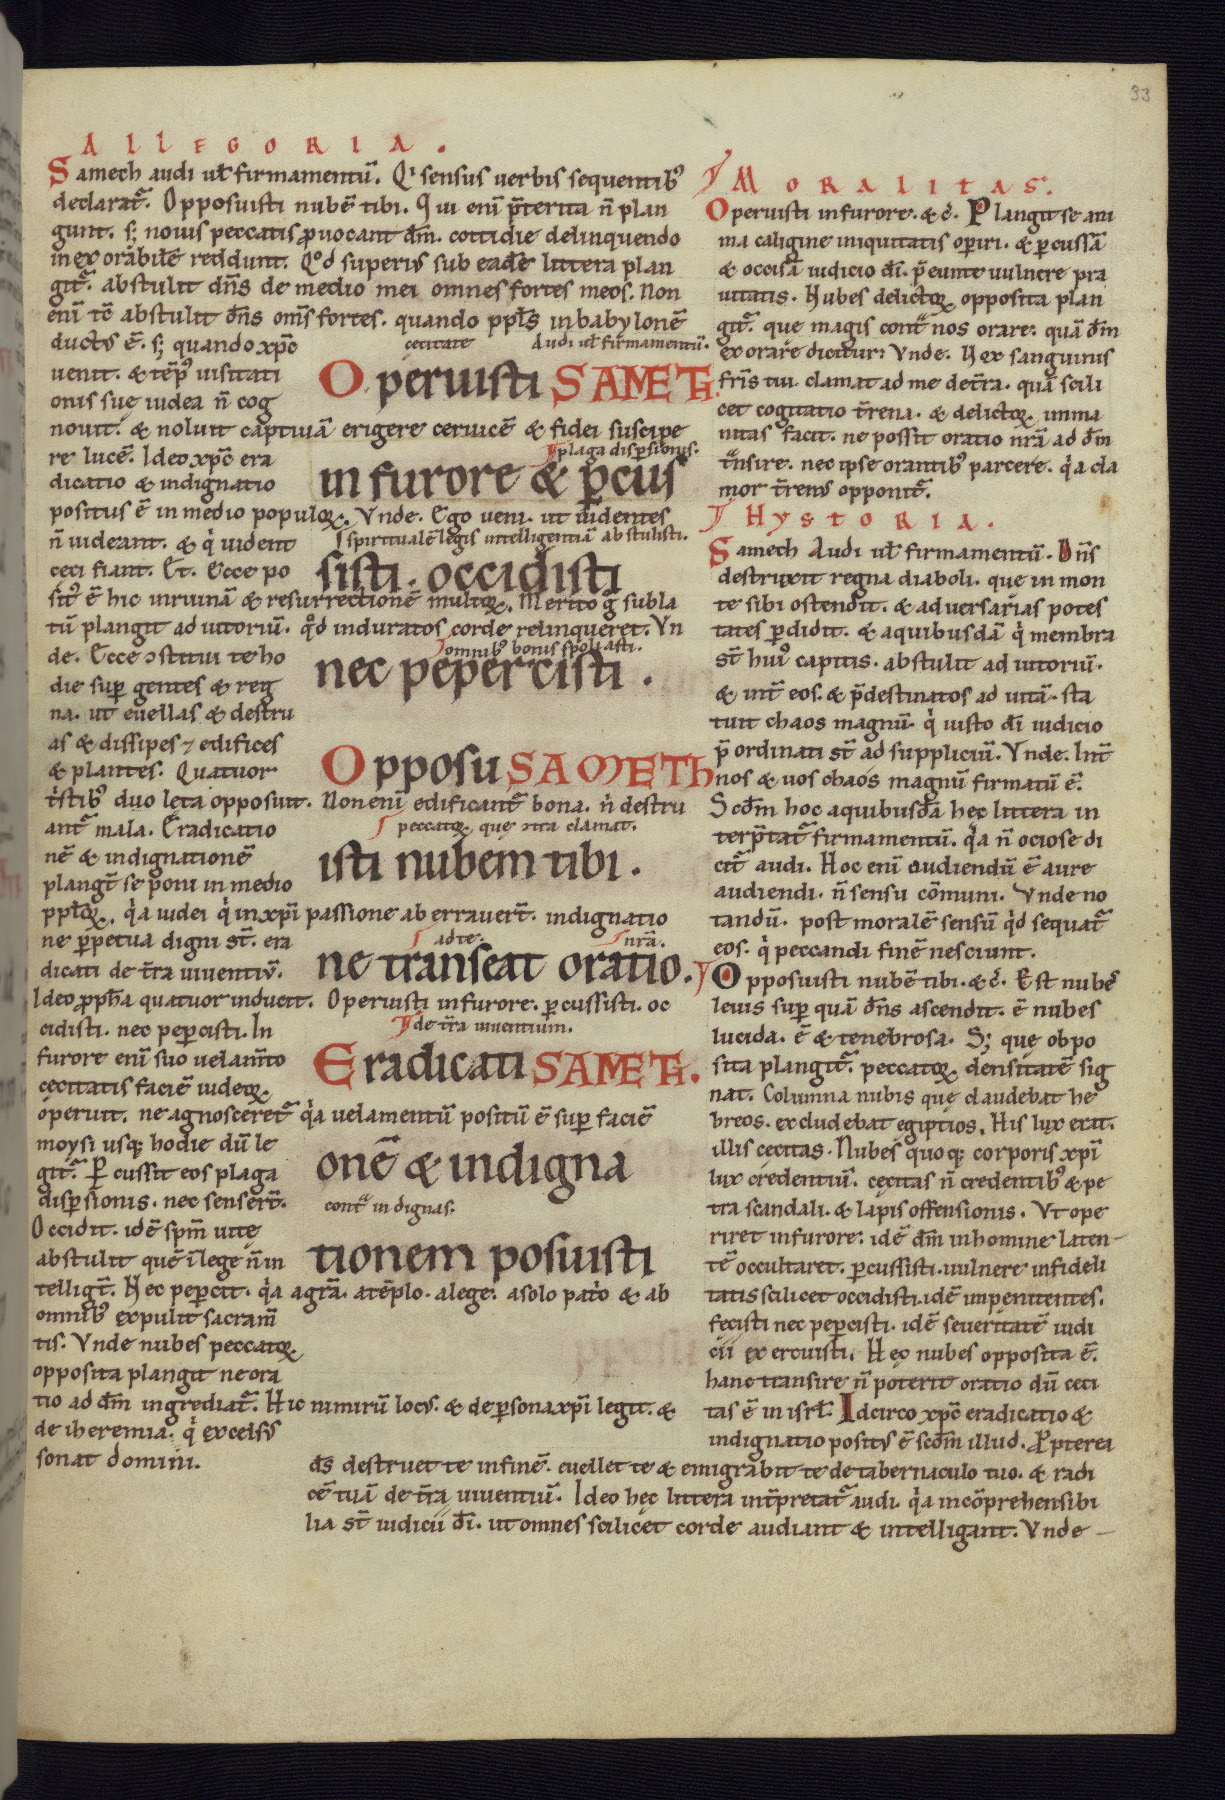 33
ALLEGORIA.
Samech audi uƚ firmamentū. Qi sensus uerbis sequentibꝰ
declarat᷑. Opposuisti nubē tibi. Qui eni p̄terita n̄ plan
gunt. s; nouis peccatis ꝓuocant dm̄. cottidie delinquendo
inexorabilē reddunt. Qd superiꝰ sub eadē littera plan
git᷑. abstulit dn̄s de medio mei omnes fortes meos. Non
eni tc̄ abstulit dn̄s om̄s fortes. quando ppl̄s in babylonē
ductꝰ ē. s; quando xpc̄
uenit. & tēpꝰ uisitati
onis suę iudea n̄ cog
nouit. & noluit captiuā erigere ceruicē & fidei suscipe
re lucē. Ideo xpc̄ era
dicatio & indignatio
positus ē in medio populoꝝ. Vnde. Ego ueni. ut uidentes
n̄ uideant. & q̇ uident
ceci fiant. Et. Ecce po
sitꝰ ē hic in ruinā & resurrectionē multoꝝ. Merito g̊ subla
tū plangit adiutoriū. qd induratos corde relinqueret. Vn
de. Ecce ↄstitui te ho
die suꝑ gentes & reg
na. ut euellas & destru
as & dissipes ⁊ edifices
& plantes. Quatuor
tr̄stibꝰ duo leta opposuit. Non eni edificant᷑ bona. n̄ destru
ant᷑ mala. Eradicatio
nē & indignationē
plangt̄ se poni in medio
ppl̄oꝝ. q̇a iudei q̇ in xpi passione aberrauert̄. indignatio
ne ꝑpetua digni st̄. era
dicati de tr̄ra uiuentiū.
Ideo ꝓph̄a quatuor inducit. Operuisti in furore. ꝑcussisti. oc
cidisti. nec pepercisti. In
furore eni suo uelam̄to
cecitatis faciē iudeoꝝ
operuit. ne agnosceret᷑ q̇a uelamentū positū ē suꝑ faciē
moysi usqꝫ hodie dū le
git᷑. Ꝑcussit eos plaga
disꝑsionis. nec senseri.
Occidit. idē spm̄ uite
abstulit quē i lege n̄ in
telligt̄. Nec peꝑcit. q̇a agr̄a. atēplo. alege. asolo pat̄o & ab
omnibꝰ expulit sacram̄
tis. Vnde nubes peccatoꝝ
opposita plangit ne ora
tio ad dm̄ ingrediat᷑. Hic nimirū locꝰ. & de ꝑsona xpi legit. &
de iheremia. q̇ excelsꝰ
sonat domini.
cecitate Audi uƚ firmamentū.
Operuisti SAMETH.
plaga disꝑsionis.
in furore & ꝑcus
spiritualē legis intelligentiā abstulisti.
sisti. occidisti
omnibꝰ bonis spoliasti.
nec pepercisti.
Opposu SAMETH
peccatoꝝ que ↄtra clamat.
isti nubem tibi.
ad te. nr̄a.
ne transeat oratio.
de tr̄ra uiuentium.
Eradicati SAMETH.
onē & indigna
cont᷑ indignas.
tionem posuisti
MORALITAS.
Operuisti in furore. & c̄. Plangit se ani
ma caligine iniquitatis oꝑiri. & ꝑcussā
& occisā iudicio di. p̄eunte uulnere pra
uitatis. Nubes delictoꝝ opposita plan
git᷑. que magis cont᷑ nos orare. quā dm̄
exorare dicitur. Vnde. Nex sanguinis
fr̄is tui clamat ad me de tr̄ra. quā scili
cet cogitatio tr̄rena. & delictoꝝ imma
nitas facit. ne possit oratio nr̄a ad dm̄
tn̄sire. nec ipse orantibꝰ parcere. q̇a cla
mor tr̄renꝰ opponit᷑.
HYSTORIA.
Samech Audi uƚ firmamentū. Dn̄s
destruxit regna diaboli. que in mon
te sibi ostendit. & aduersarias potes
tates ꝑdidit. & aquibusdā q̇ membra
st̄ huiꝰ capitis. abstulit adiutoriū.
& int̄ eos. & p̄destinatos ad uitā. sta
tuit chaos magnū. q̇ iusto di iudicio
p̄ordinati st̄ ad suppliciū. Vnde. Int̄
nos & uos chaos magnū firmatū ē.
Scdm̄ hoc aquibusdā hec littera in
terp̄tat᷑ firmamentū. q̇a n̄ ociose di
cit᷑ audi. Hoc eni audiendū ē aure
audiendi. n̄ sensu cōmuni. Vnde no
tandū. post moralē sensū qd sequat᷑
eos. q̇ peccandi finē nesciunt.
Opposuisti nubē tibi. & c̄. Est nubes
leuis suꝑ quā dn̄s ascendit. ē nubes
lucida. ē & tenebrosa. S; quę obpo
sita plangit᷑. peccatoꝝ densitatē sig
nat. Columna nubis quę claudebat he
breos. excludebat egiptios. His lux erat.
illis cęcitas. Nubes quoqꝫ corporis xpi
lux credentiū. cęcitas n̄ credentibꝰ & pe
tra scandali. & lapis offensionis. Vt ope
riret in furore. idē dm̄ in homine laten-
tē occultaret. ꝑcussisti. uulnere infideli
tatis scilicet occidisti. idē inpenitentes.
fecisti nec peꝑcisti. idē seueritatē iudi
cii exercuisti. Hęc nubes opposita ē.
hanc transire n̄ poterit oratio dū ceci
tas ē in isrl̄. Idcirco xpc̄ eradicatio &
indignatio positꝰ ē scdm̄ illud. Ꝓpterea
ds̄ destruet te in finē. euellet te & emigrabit te de tabernaculo tuo. & radi
cē tuā de tr̄ra uiuentiū. Ideo hęc littera int̄pretat᷑ audi. q̇a incōprehensibi
lia st̄ iudicii di. ut omnes scilicet corde audiant & intelligant. Vnde –